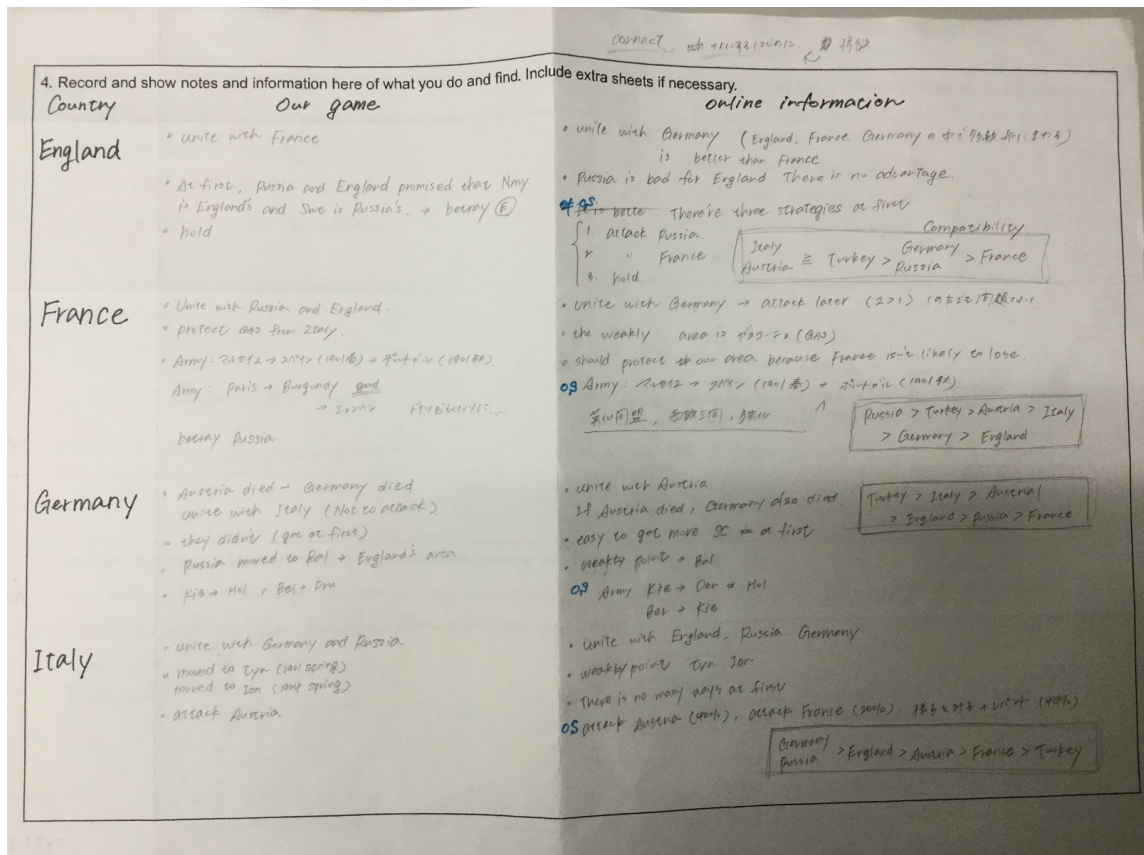 connect
4. Record and show notes and information here of what you do and find. Include extra sheets if necessary.
Country
Our game
online information
England
• unite with France
• At first, Russia and England promised that Nmy
is England's and Swe is Russia's. → betray Ⓔ
• hold
• unite with Germany (England, France, Germany の中で
is better than France
• Russia is bad for England There is no advantage.
OS There're three strategies at first
1. attack Russia.
2 " France
3. hold
Compatibility
Italy Austria ≧ Turkey > Germany Russia > France
France
• Unite with Russia and England.
• protect from Italy.
• Army: マルセイユ → スペイン (1901春) → ポルトガル (1901秋)
Army: Paris → Burgundy good
betray Russia
• unite with Germany → attack later (2>1)
• the weakly area is (GAS)
• should protect our area because France isn't likely to lose.
OS Army: マルセイユ → スペイン (1901春) → ポルトガル (1901秋)
Russia > Turkey > Austria > Italy
> Germany > England
Germany
• Austria died – Germany died
unite with Italy (Not to attack)
• they didn't (got at first)
• Russia moved to Bal → England's area
• Kie → Hol,
• unite with Austria
If Austria died, Germany also died.
• easy to get more SC at first
• weakly point → Bal
OS Army Kie → Den or Hol
Ber → Kie
Turkey > Italy > Austria
> England > Russia > France
Italy
• unite with Germany and Russia
• moved to Tyn (1901 spring)
moved to Ion (1904 spring)
• attack Austria
• unite with England, Russia Germany
• weakly point Tyn Ion
• There is no many ways at first
OS attack Austria (40%), attack France (20%), (40%)
Germany Russia > England > Austria > France > Turkey